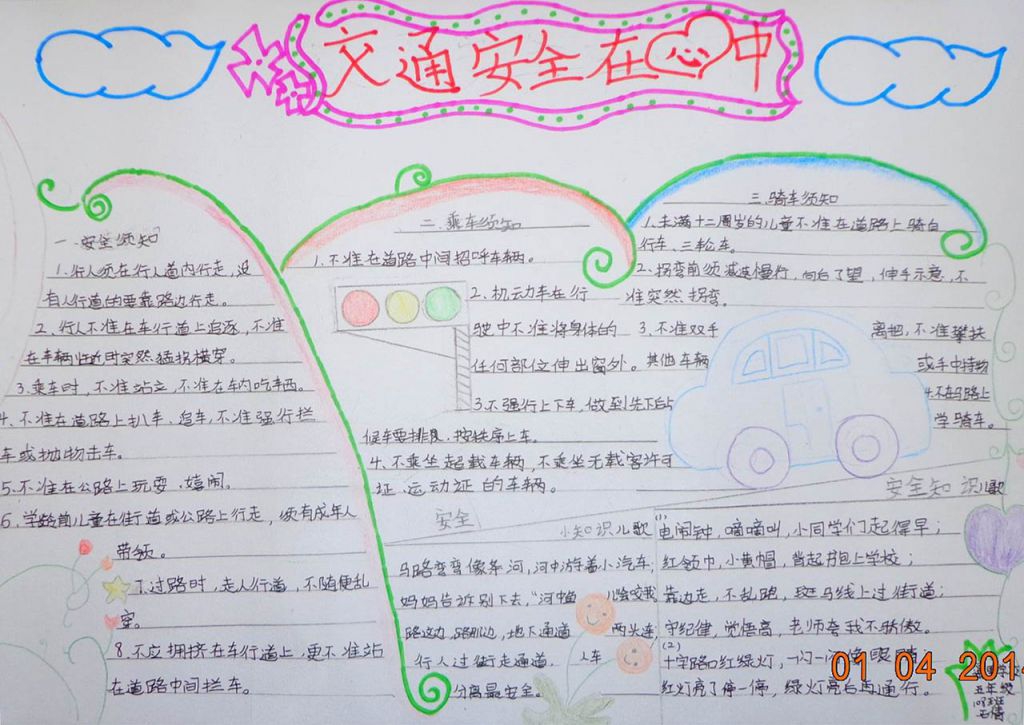 交通安全在心中
一.安全须知
1.行人须在行人道内行走,没
有人行道的要靠路边行走。
2、行人不准在车行道上追逐,不准
在车辆临近时突然猛拐横穿。
3.乘车时,不准站立,不准在车内吃东西。
4、不准在道路上扒车、追车,不准强行拦
车或抛物击车。
5.不准在公路上玩耍、嬉闹。
6、学龄前儿童在街道或公路上行走,须有成年人
带领。
7.过路时,走人行道,不随便乱
穿。
8.不应拥挤在车行道上,更不准站
在道路中间拦车。
二、乘车须知
1.不准在道路中间招呼车辆。
2、机动车在行
驶中不准将身体的
任何部位伸出窗外。
3.不强行上下车,做到先下后上
候车要排良,按秩序上车。
4、不乘坐超载车辆,不乘坐无载客许可
证、运动证的车辆。
三.骑车须知
1.未满十二周岁的儿童不准在道路上骑自
行车、三轮车。
2、拐弯前须减速慢行,向后了望,伸手示意,不
准突然拐弯。
3.不准双手离把,不准攀扶
其他车辆或手中持物
4.不在马路上
学骑车。
安全
小知识儿歌
马路弯弯像条河,河中游着小汽车;
妈妈告诉别下去,"河中鱼儿会咬我
路这边,路那边,地下通道两头连
行人过街走通道,人车
分离最安全。
安全知识儿歌
(1)
电闹钟,嘀嘀叫,小同学们起得早;
红领巾,小黄帽,背起书包上学校;
靠边走,不乱跑,斑马线上过街道;
守纪律,觉悟高,老师夸我不骄傲。
(2)
十字路口红绿灯,一闪一闪像眼睛
红灯亮了停一停,绿灯亮后再通行。
01 04 2014
学校
五年级
班